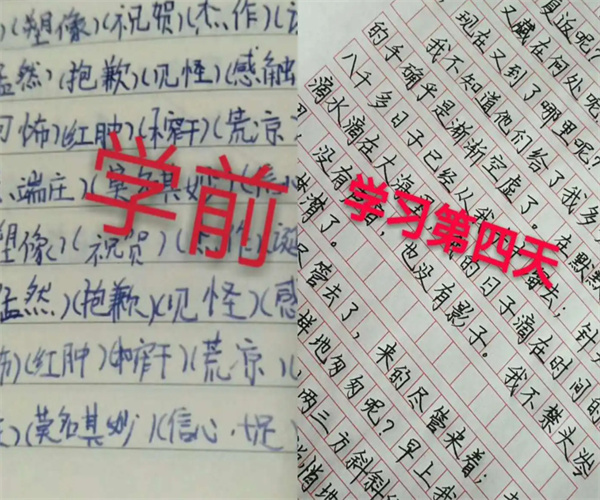 )(塑像)(祝贺)(杰作)(
然)(抱歉)(见怪)(感触
怖)(红肿)( )(荒凉
端庄)(莫名其妙)(信心
塑像)(祝贺)(杰作)(诞
然)(抱歉)(见怪)(感
怖)(红肿)( )(荒凉)(
)(莫名其妙)(信心十足
学前
复返呢?
又藏在何处呢
,现在又到了哪里呢?
我不知道他们给了我多
的手确乎是渐渐空虚了。在默默
八千多日子已经从我 溜去;针
滴水滴在大海 的日子滴在时间的
没有 ,也没有影子。我不禁头涔
潸了。
尽管去了,来的尽管来着;
样地匆匆呢?早上我
两三方斜斜
悄地
学习第四天